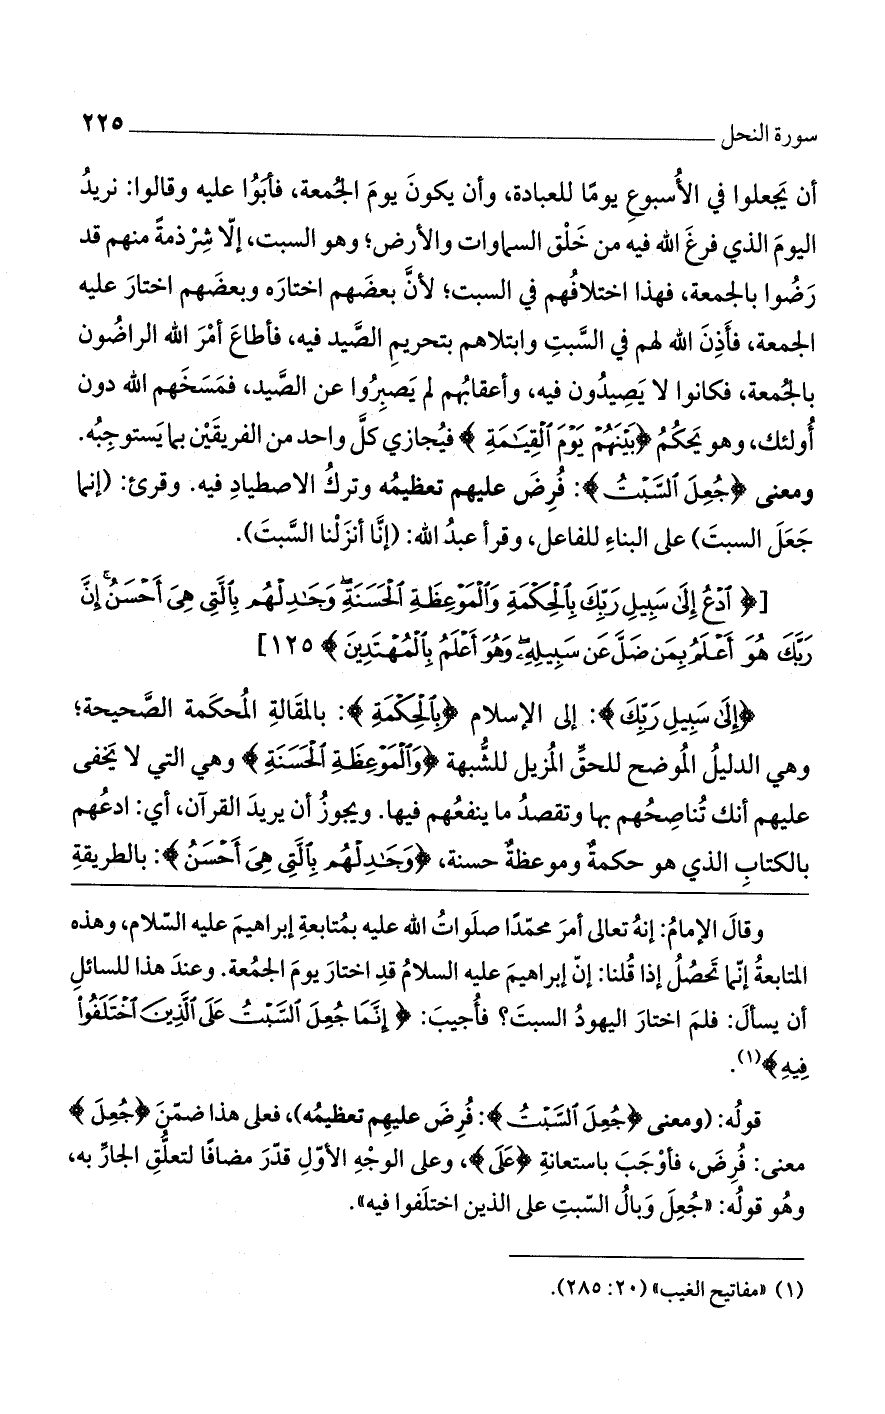 سورة النحل ٢٢٥
أن يَجعلوا في الأُسبوعِ يومًا للعبادة، وأن يكونَ يومَ الجُمعة، فأبَوُا عليه وقالوا: نريدُ
اليومَ الذي فرغَ الله فيه من خَلْق السماوات والأرض؛ وهو السبت، إلّا شِرْذمةً منهم قد
رَضُوا بالجمعة، فهذا اختلافُهم في السبت؛ لأنَّ بعضَهم اختارَه وبعضَهم اختارَ عليه
الجمعة، فأَذِنَ الله لهم في السَّبتِ وابتلاهم بتحريمِ الصَّيد فيه، فأطاعَ أمْرَ الله الراضُون
بالجُمعة، فكانوا لا يَصِيدُون فيه، وأعقابُهم لم يَصبِرُوا عن الصَّيد، فمَسَخَهم الله دون
أُولئك، وهو يَحكُمُ ﴿بَيْنَهُمْ يَوْمَ ٱلْقِيَٰمَةِ﴾ فيُجازي كلَّ واحد من الفريقَيْن بما يَستوجِبُه.
ومعنى ﴿جُعِلَ ٱلسَّبْتُ﴾: فُرِضَ عليهم تعظيمُه وتركُ الاصطيادِ فيه. وقرئ: (إنما
جَعَلَ السبتَ) على البناءِ للفاعل، وقرأ عبدُ الله: (إنَّا أنزَلْنا السَّبتَ).
[﴿ٱدْعُ إِلَىٰ سَبِيلِ رَبِّكَ بِٱلْحِكْمَةِ وَٱلْمَوْعِظَةِ ٱلْحَسَنَةِ ۖ وَجَٰدِلْهُم بِٱلَّتِى هِىَ أَحْسَنُ ۚ إِنَّ
رَبَّكَ هُوَ أَعْلَمُ بِمَن ضَلَّ عَن سَبِيلِهِۦ ۖ وَهُوَ أَعْلَمُ بِٱلْمُهْتَدِينَ﴾ ١٢٥]
﴿إِلَىٰ سَبِيلِ رَبِّكَ﴾: إلى الإسلام ﴿بِٱلْحِكْمَةِ﴾: بالمَقالةِ المُحكَمة الصَّحيحة؛
وهي الدليلُ المُوضح للحقِّ المُزيل للشُّبهة ﴿وَٱلْمَوْعِظَةِ ٱلْحَسَنَةِ﴾ وهي التي لا يَخفى
عليهم أنك تُناصِحُهم بها وتقصدُ ما ينفعُهم فيها. ويجوزُ أن يريدَ القرآن، أي: ادعُهم
بالكتابِ الذي هو حكمةٌ وموعظةٌ حسنة، ﴿وَجَٰدِلْهُم بِٱلَّتِى هِىَ أَحْسَنُ﴾: بالطريقةِ
وقالَ الإمامُ: إنهُ تعالى أمرَ محمّدًا صلَواتُ الله عليه بمُتابعةِ إبراهيمَ عليه السّلام، وهذه
المتابعةُ إنّما تَحصُلُ إذا قُلنا: إنّ إبراهيمَ عليه السلامُ قدِ اختارَ يومَ الجمُعة. وعندَ هذا للسائلِ
أن يسألَ: فلمَ اختارَ اليهودُ السبتَ؟ فأُجيبَ: ﴿إِنَّمَا جُعِلَ ٱلسَّبْتُ عَلَى ٱلَّذِينَ ٱخْتَلَفُوا۟
فِيهِ﴾(١).
قولُه: (ومعنى ﴿جُعِلَ ٱلسَّبْتُ﴾: فُرِضَ عليهِم تعظيمُه)، فعلى هذا ضمّنَ ﴿جُعِلَ﴾
معنى: فُرِضَ، فأوْجَبَ باستعانةِ ﴿عَلَى﴾، وعلى الوجْهِ الأوّلِ قدّرَ مضافًا لتعلُّقِ الجارِّ به،
وهُو قولُه: «جُعِلَ وَبالُ السّبتِ على الذين اختلَفوا فيه».
(١) «مفاتيح الغيب» (٢٠: ٢٨٥).